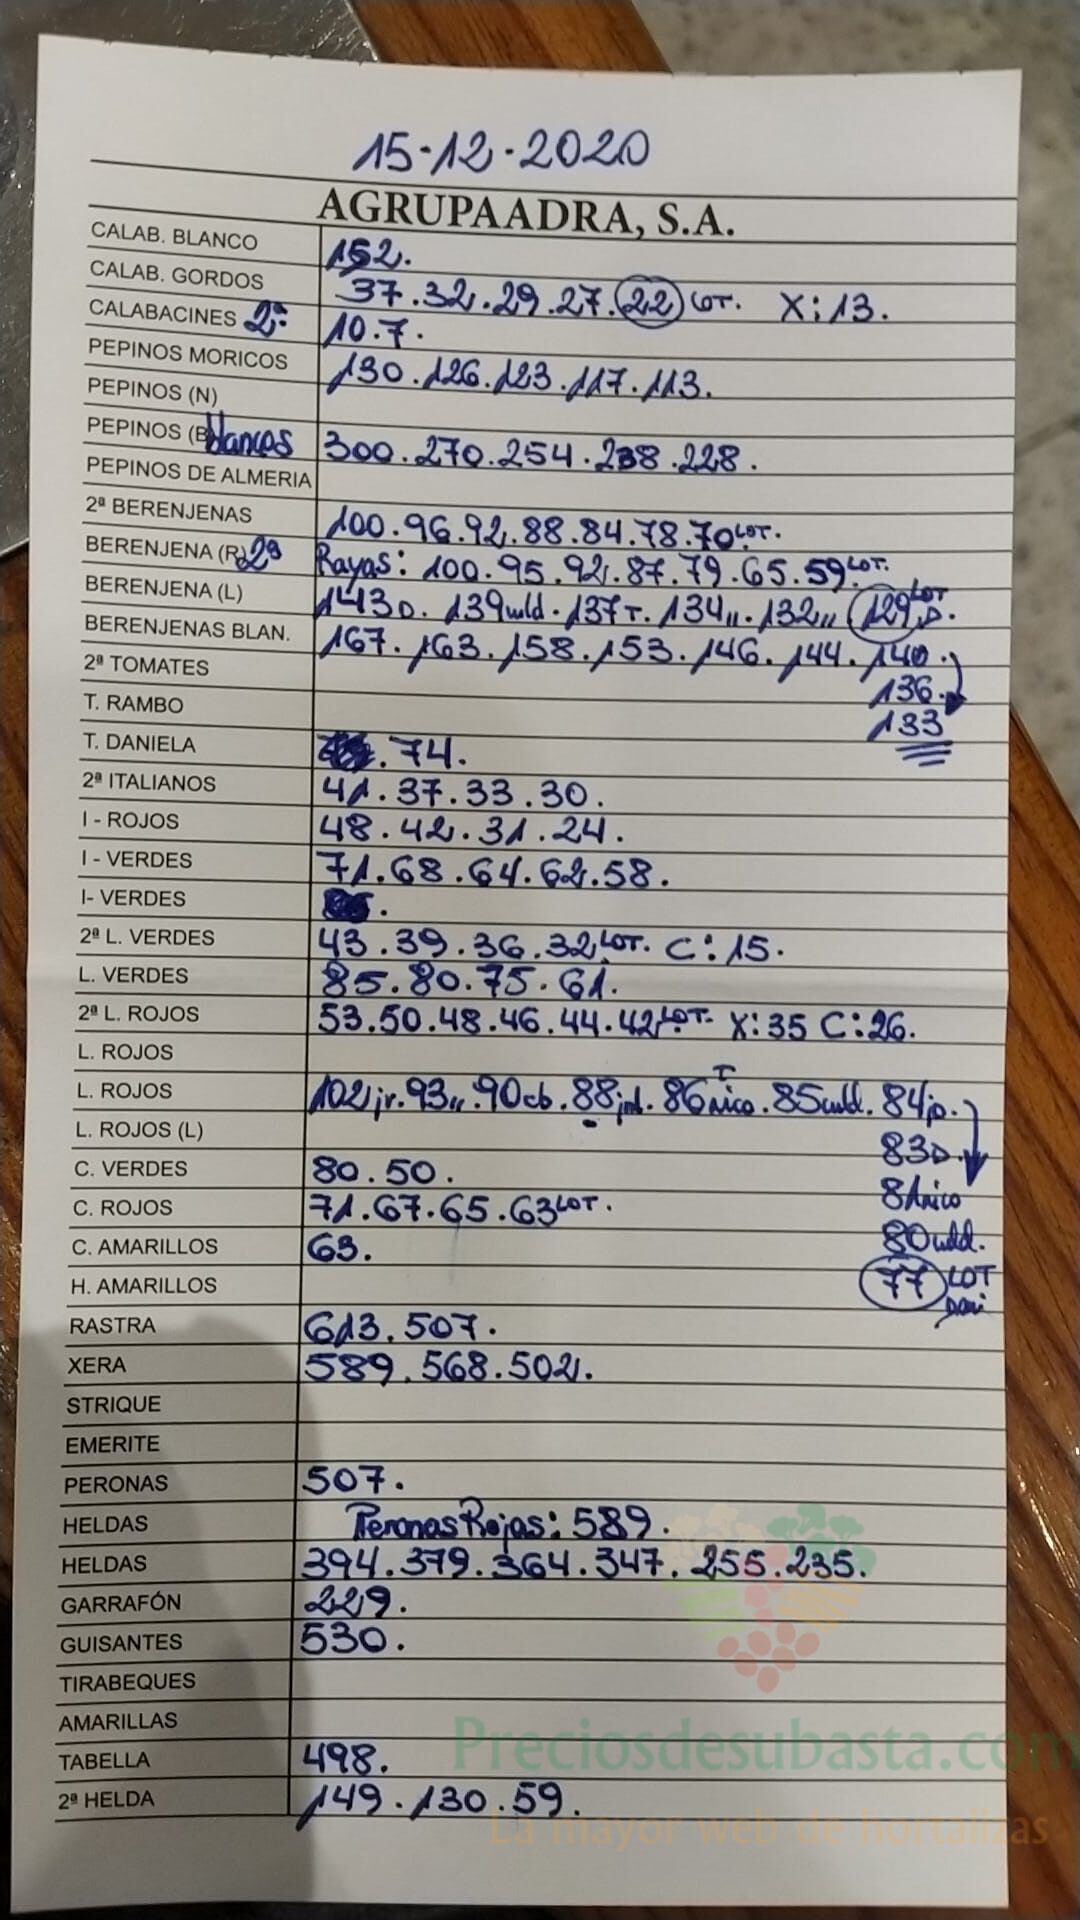 15-12-2020
AGRUPAADRA, S.A.
CALAB. BLANCO 152.
CALAB. GORDOS 37.32.29.27.22 LOT. X:13.
CALABACINES 2ª 10.7.
PEPINOS MORICOS 130.126.123.117.113.
PEPINOS (N)
PEPINOS (Blancos 300.270.254.238.228.
PEPINOS DE ALMERIA
2ª BERENJENAS 100.96.92.88.84.78.70 LOT.
BERENJENA (R) 2ª Rayas: 100.95.92.87.79.65.59 LOT.
BERENJENA (L) 143D. 139mld. 137T. 134,,. 132,, 129 LOT D.
BERENJENAS BLAN. 167.163.158.153.146.144.140.
2ª TOMATES 136.
T. RAMBO 133
T. DANIELA .74.
2ª ITALIANOS 41.37.33.30.
I - ROJOS 48.42.31.24.
I - VERDES 71.68.64.62.58.
I- VERDES
2ª L. VERDES 43.39.36.32 LOT. C:15.
L. VERDES 85.80.75.61.
2ª L. ROJOS 53.50.48.46.44.42 LOT. X:35 C:26.
L. ROJOS
L. ROJOS 102jr. 93,,. 90cb. 88 . 86 T nico. 85mld. 84jp.
L. ROJOS (L) 83D.
C. VERDES 80.50. 81nico
C. ROJOS 71.67.65.63 LOT.
C. AMARILLOS 63. 80mld.
H. AMARILLOS 77 LOT
RASTRA 613.507.
XERA 589.568.502.
STRIQUE
EMERITE
PERONAS 507.
HELDAS Peronas Rojas: 589.
HELDAS 394.379.364.347.255.235.
GARRAFÓN 229.
GUISANTES 530.
TIRABEQUES
AMARILLAS
TABELLA 498.
2ª HELDA 149.130.59.
Preciosdesubasta.com
La mayor web de hortalizas